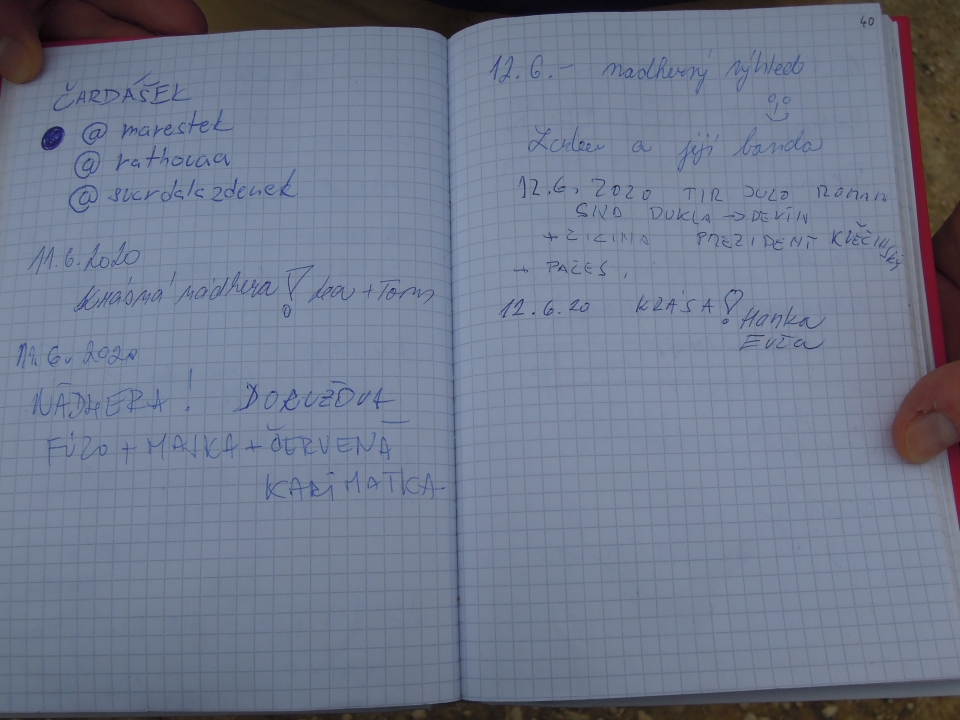 ČARDÁŠEK
@ marestek
@ rathovaa
@ svrdalazdenek
11.6.2020
Krásná nádhera! Lea + Tom
11.6.2020
NÁDHERA!
FÚZO + MAJKA + ČERVENÁ
KARIMATKA
40
12.6. - nádherný výhled
a její banda
12.6. 2020 TIR DUZO ROMAN
SNP DUKLA → DEVÍN
+ PREZIDENT
+ PAČES,
12.6.20 KRÁSA!
Hanka
Evča